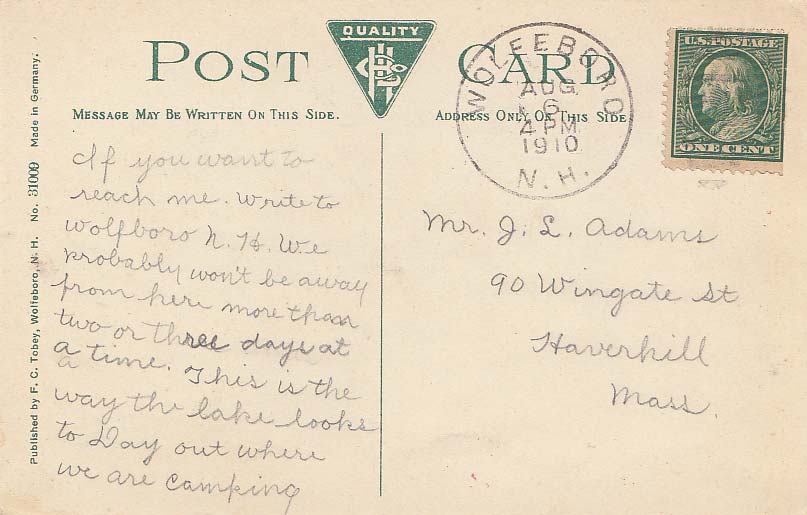 POST CARD
QUALITY
MESSAGE MAY BE WRITTEN ON THIS SIDE.
ADDRESS ONLY ON THIS SIDE
WOLFEBORO
AUG
6
4 PM
1910
N.H.
U.S. POSTAGE
ONE CENT
Published by F. C. Tobey, Wolfeboro, N. H. No. 31009 Made in Germany.
If you want to
reach me. Write to
wolfboro N. H. We
probably won't be away
from here more than
two or three days at
a time. This is the
way the lake looks
to Day out where
we are camping
Mr. J. L. Adams
90 Wingate St
Haverhill
Mass.